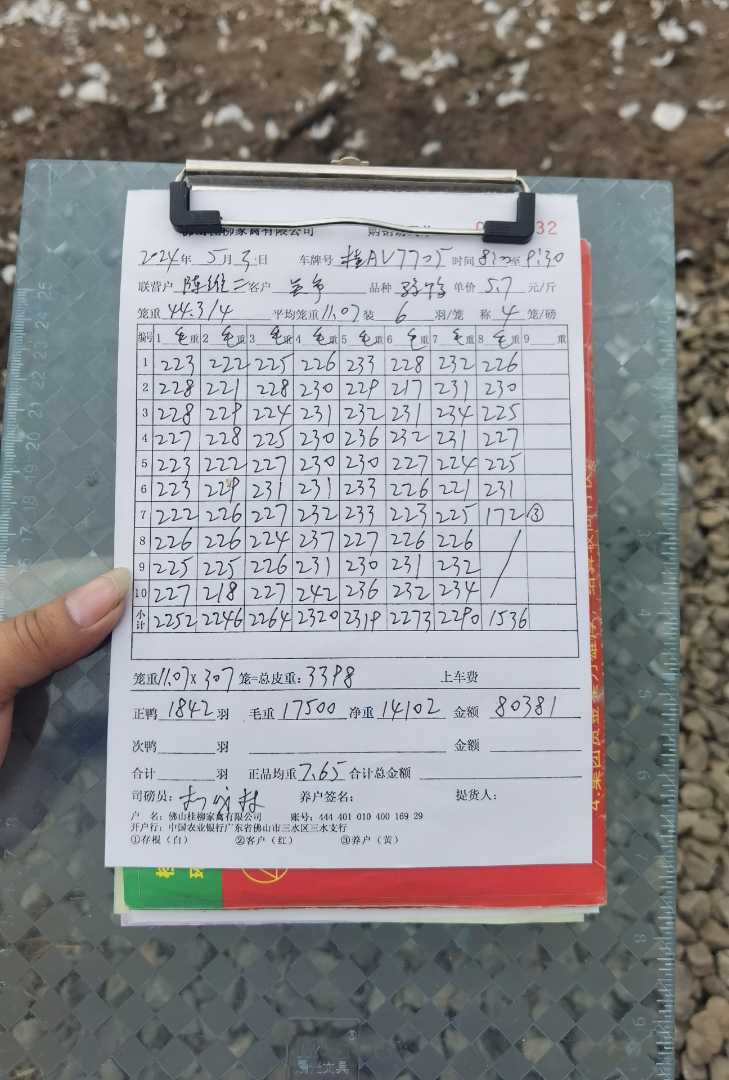 柳家禽有限公司 32
2024年 5月 3日 车牌号 桂AV7705 时间 8:00至9:30
联营户 陈维二 客户 品种 单价 5.7 元/斤
笼重 44.3/4 平均笼重 11.07 装 6 羽/笼 称 4 笼/磅
编号 1 毛重 2 毛重 3 毛重 4 毛重 5 毛重 6 毛重 7 毛重 8 毛重 9 重
1 223 222 225 226 233 228 232 226
2 228 221 228 230 229 217 231 230
3 228 229 224 231 232 231 234 225
4 227 228 225 230 236 232 231 227
5 223 222 227 230 230 227 224 225
6 223 229 231 231 233 226 221 231
7 222 226 227 232 233 223 225 172 ③
8 226 226 224 237 227 226 226 /
9 225 225 226 231 230 231 232
10 227 218 227 242 236 232 234
小计 2252 2246 2264 2320 2319 2273 2290 1536
笼重 11.07 x 307 笼=总皮重: 3398 上车费
正鸭 1842 羽 毛重 17500 净重 14102 金额 80381
次鸭 羽 金额
合计 羽 正品均重 7.65 合计总金额
司磅员: 养户签名: 提货人:
户 名: 佛山桂柳家禽有限公司 账号: 444 401 010 400 169 29
开户行: 中国农业银行广东省佛山市三水区三水支行
①存根(白) ②客户(红) ③养户(黄)